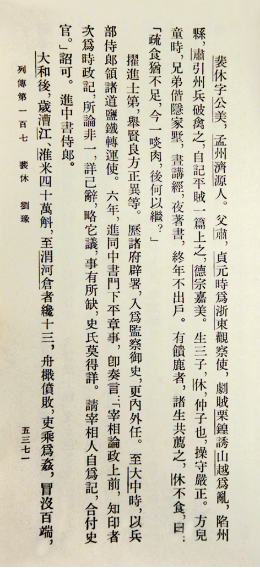 裴休字公美，孟州濟源人。父肅，貞元時爲浙東觀察使，劇賊栗鍠誘山越爲亂，陷州
縣，肅引州兵破禽之，自記平賊一篇上之，德宗嘉美。生三子，休，仲子也，操守嚴正。方兒
童時，兄弟偕隱家墅，晝講經，夜著書，終年不出戶。有饋鹿者，諸生共薦之，休不食，曰：
「疏食猶不足，今一啖肉，後何以繼？」
擢進士第，舉賢良方正異等。歷諸府辟署，入爲監察御史，更內外任。至大中時，以兵
部侍郎領諸道鹽鐵轉運使。六年，進同中書門下平章事，卽奏言：「宰相論政上前，知印者
次爲時政記，所論非一，詳己辭，略它議，事有所缺，史氏莫得詳。請宰相人自爲記，合付史
官。」詔可。進中書侍郎。
大和後，歲漕江、淮米四十萬斛，至渭河倉者纔十三，舟檝僨敗，吏乘爲姦，冒沒百端，
列傳第一百七 裴休 劉瑑
五三七一